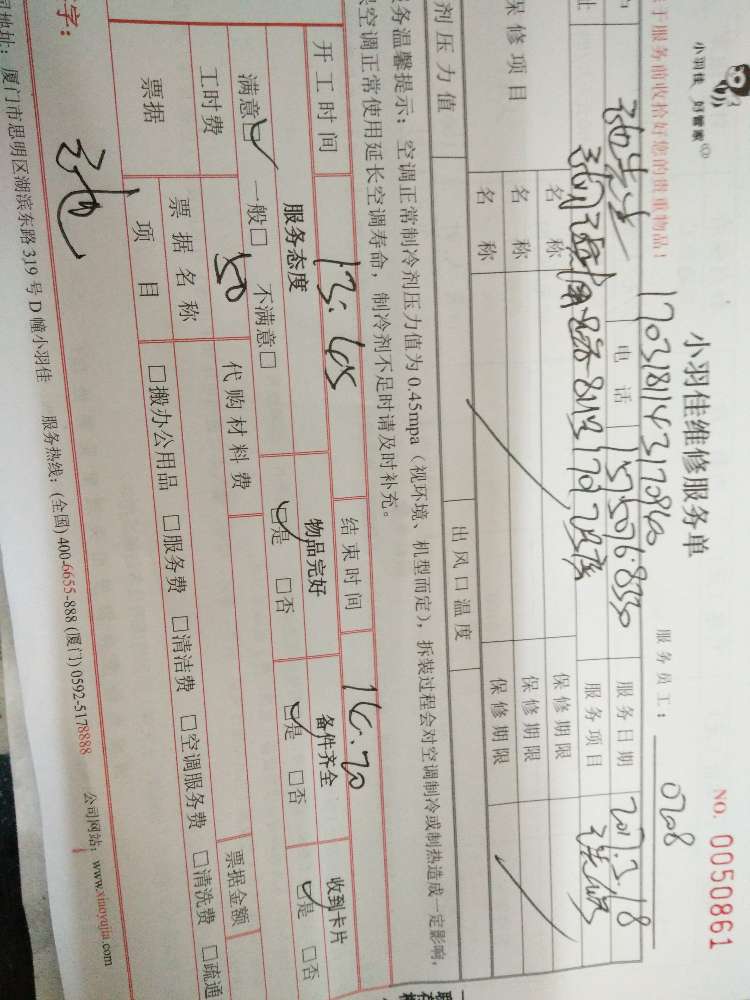 小羽佳 好管家
小羽佳维修服务单
NO. 0050861
17031814317840
服务员工: 0708
于服务前收拾好您的贵重物品!
电话
服务日期 2017.3.18
服务项目
保修项目
名称 保修期限
名称 保修期限
名称 保修期限
剂压力值 出风口温度
务温馨提示: 空调正常制冷剂压力值为 0.45mpa (视环境、机型而定), 拆装过程会对空调制冷或制热造成一定影响,
空调正常使用延长空调寿命, 制冷剂不足时请及时补充。
开工时间 13:45 结束时间
服务态度 物品完好 备件齐全 收到卡片
满意□ 一般□ 不满意□ □是 □否 □是 □否 □是 □否
工时费 50 代购材料费
票据 票据名称 票据金额
项目 □搬办公用品 □服务费 □清洁费 □空调服务费 □清洗费 □疏通
字:
地址: 厦门市思明区湖滨东路 319 号 D 幢小羽佳 服务热线: (全国) 400-6655-888 (厦门) 0592-5178888 公司网站: www.xiaoyujia.com